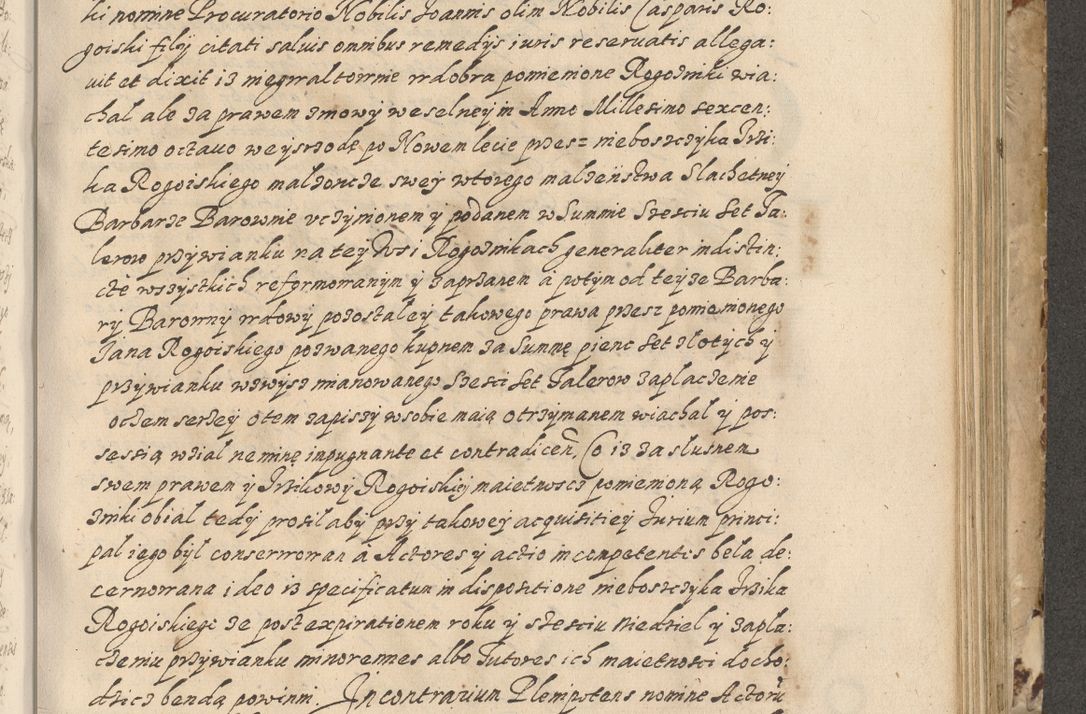 ki nomine Procuratorio Nobilis Joannis olim Nobilis Casparis Ro:
goiski filÿ citati saluis omnibus remedÿs iuris reseruatis allega:
uit et dixit iz niegwaltownie w dobra pomienione Rogozniki wia:
chal ale za prawem zmowy weselney in Anno Millesimo sexcen:
tesimo octauo we ysrzodę po Nowem lecie przez nieboszczyka Irzi:
ka Rogoiskiego malzoncze swey wtorego malzeństwa Slachetney
Barbarze Barownie vczynionem y podanem w Summie Szesciu set Ta:
lerow przywianku na tey Wsi Rogoznikach generaliter indistin:
cte wszystkich reformowanym y zaprzanem á potym od teyze Barba:
ry Barowny wdowy pozostaley takowego prawa przesz pomienionego
Jana Rogoiskiego pozwanego kupnem za Summę pienc set zlotych y
przywianku wzwysz mianowanego Szesci set Talerow zaplaczenie
oczem serzey o tem zapiszy w sobie maią otrzymanem wiachal y pos:
sessią wzial nemine inpugnante et contradicen, Co iz za slusnem
swem prawem y Irzikowy Rogoiskiej maietnoscz pomienioną Rogo:
zniki obial tedy prosil aby przy takowey acquisitiey Iurium princi:
pal iego byl conserwowan á Actores y actio incompetentes bela de:
cernowana ideo iz specificatum in dispositione nieboszczyka Irzika
Rogoiskiego ze post expirationem roku y szesciu Niedziel y zapla:
czeniu przywianku minorennes albo Tutores ich maietnosci docho:
dzicz bendą powinni. In contrarium Plenipotens nomine Actorū